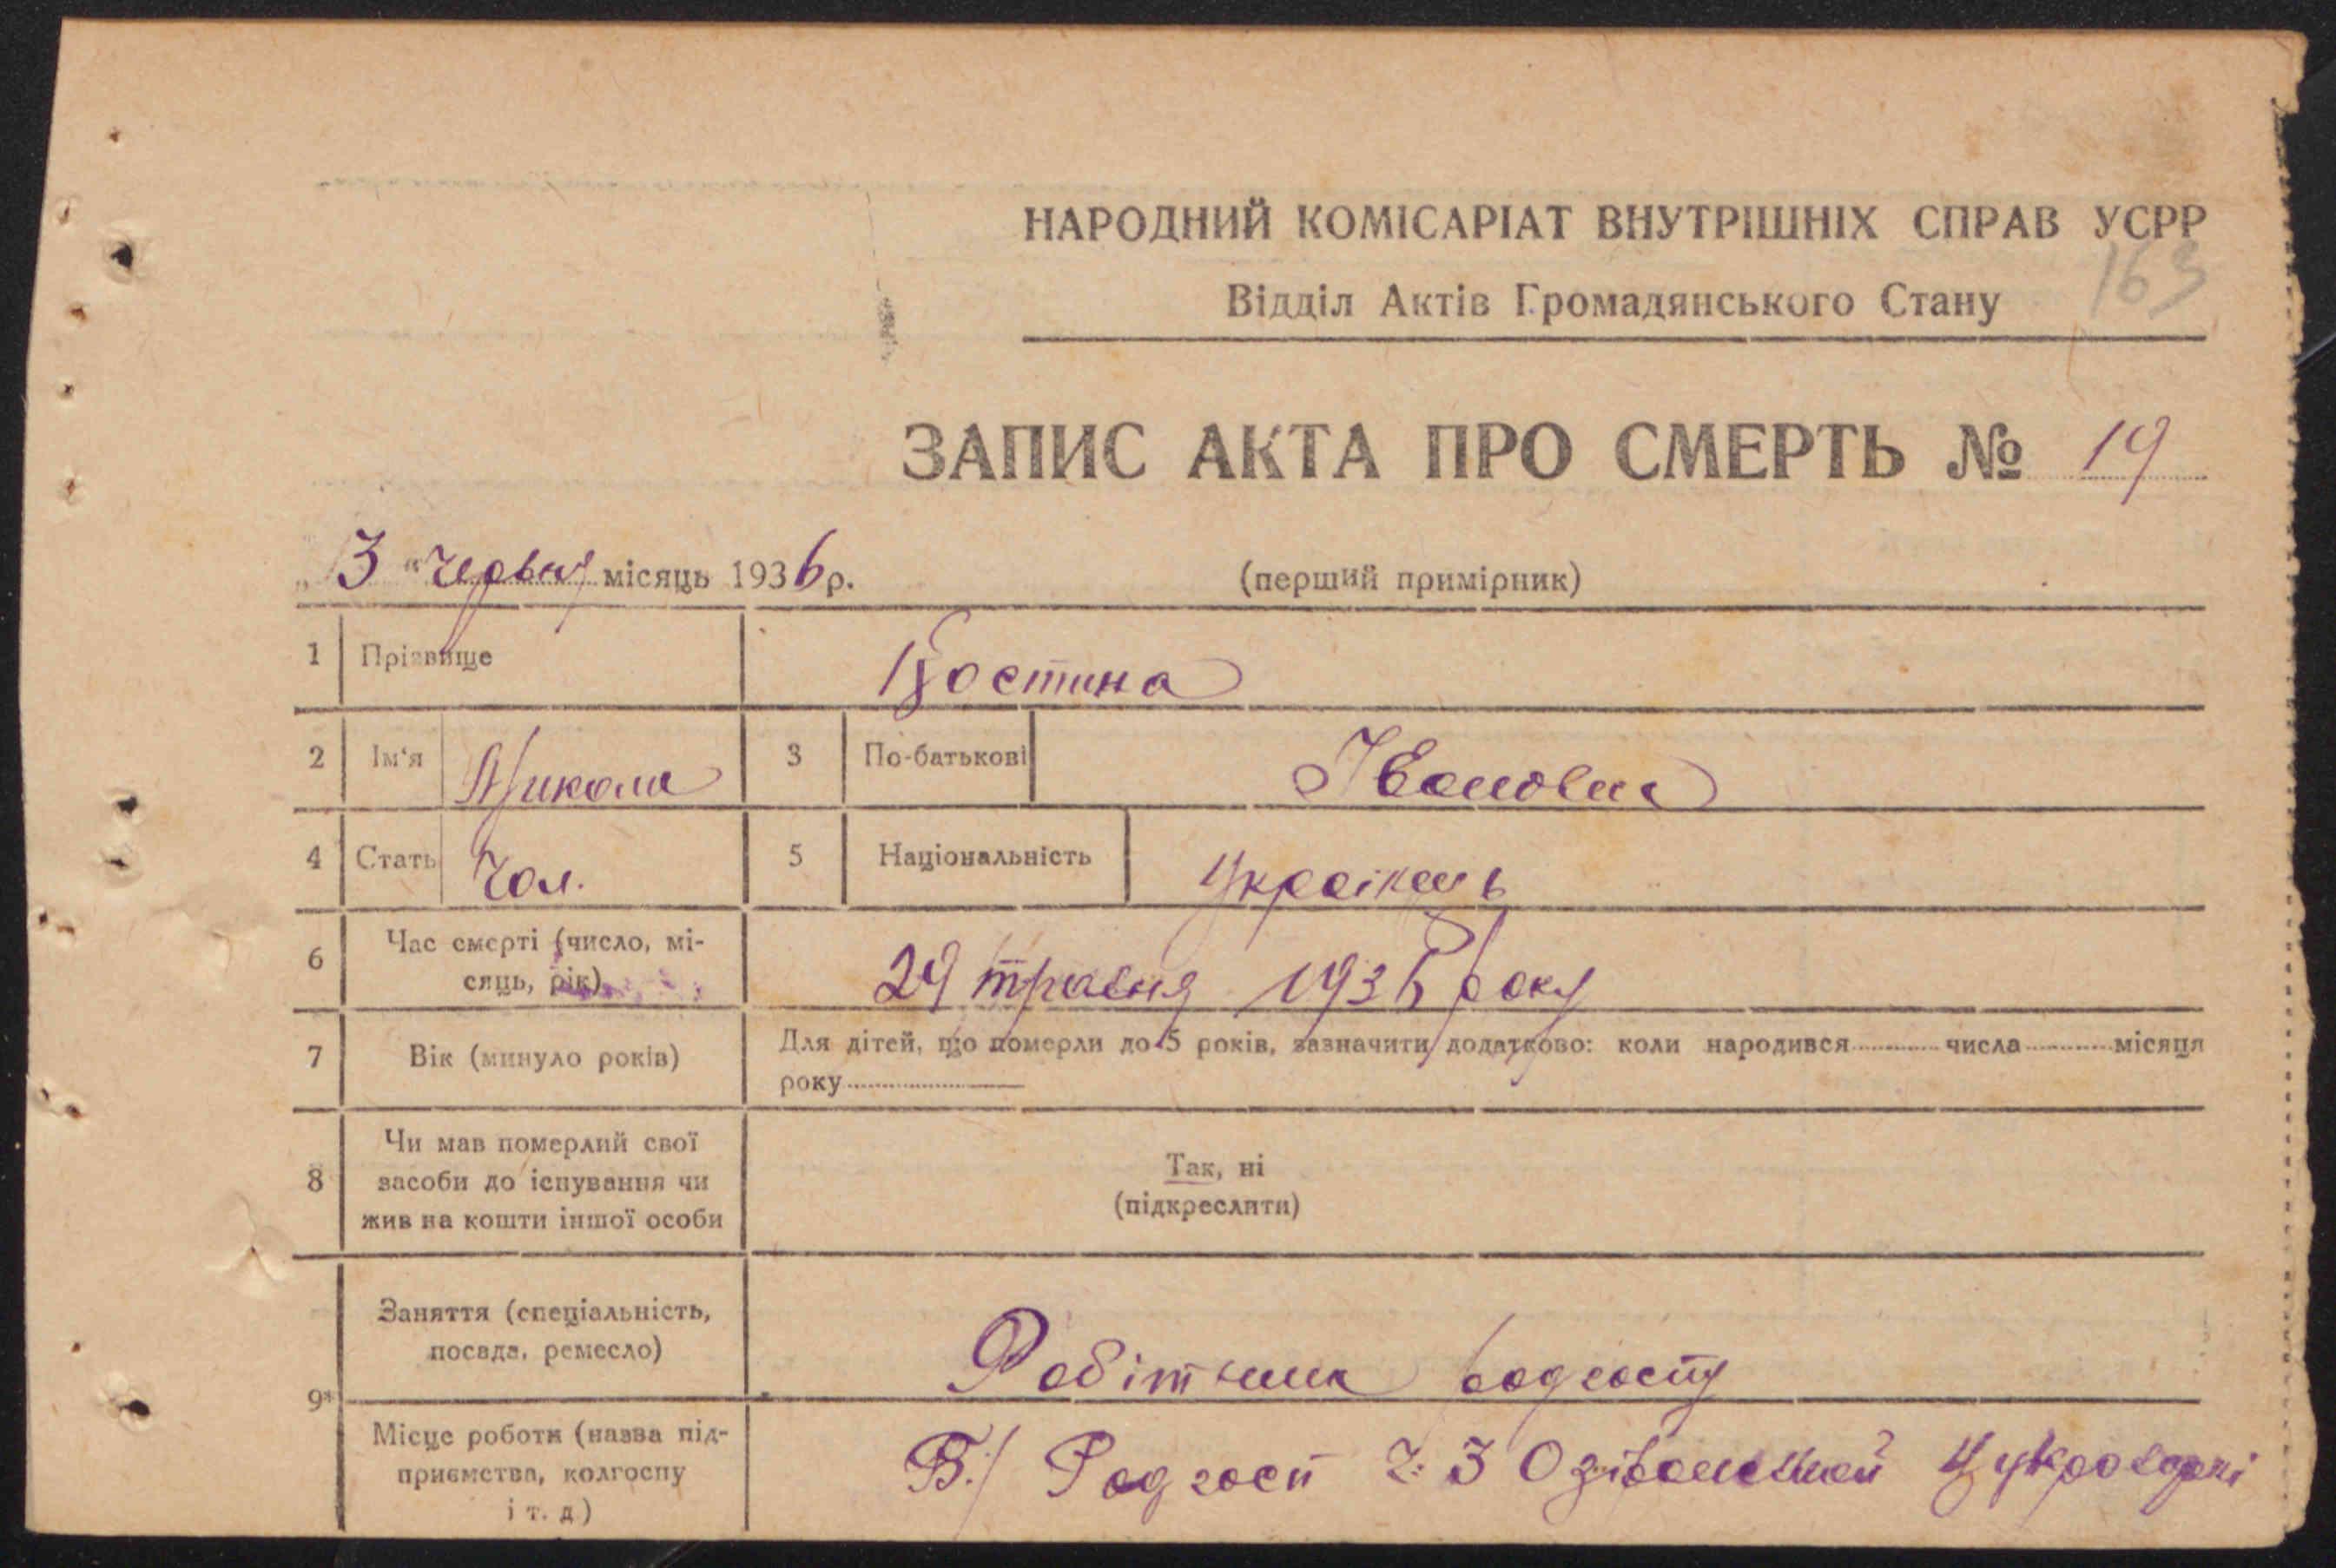 НАРОДНИЙ КОМІСАРІАТ ВНУТРІШНІХ СПРАВ УСРР
163
Відділ Актів Громадянського Стану
ЗАПИС АКТА ПРО СМЕРТЬ № 19
„3“ червня місяць 1936 р.
(перший примірник)
1 Прізвище Костина
2 Ім‘я Микола 3 По-батькові Іванович
4 Стать Чол. 5 Національність Українець
6 Час смерті (число, мі-
сяць, рік) 29 травня 1936 року
7 Вік (минуло років) Для дітей, що померли до 5 років, зазначити додатково: коли народився числа місяця
року
8 Чи мав померлий свої
засоби до існування чи
жив на кошти іншої особи
Так, ні
(підкреслити)
9*
Заняття (спеціальність,
посада, ремесло) Робітник радгоспу
Місце роботи (назва під-
приємства, колгоспу
і т. д)
Б./ Радгосп ч. 3 Цукроварні